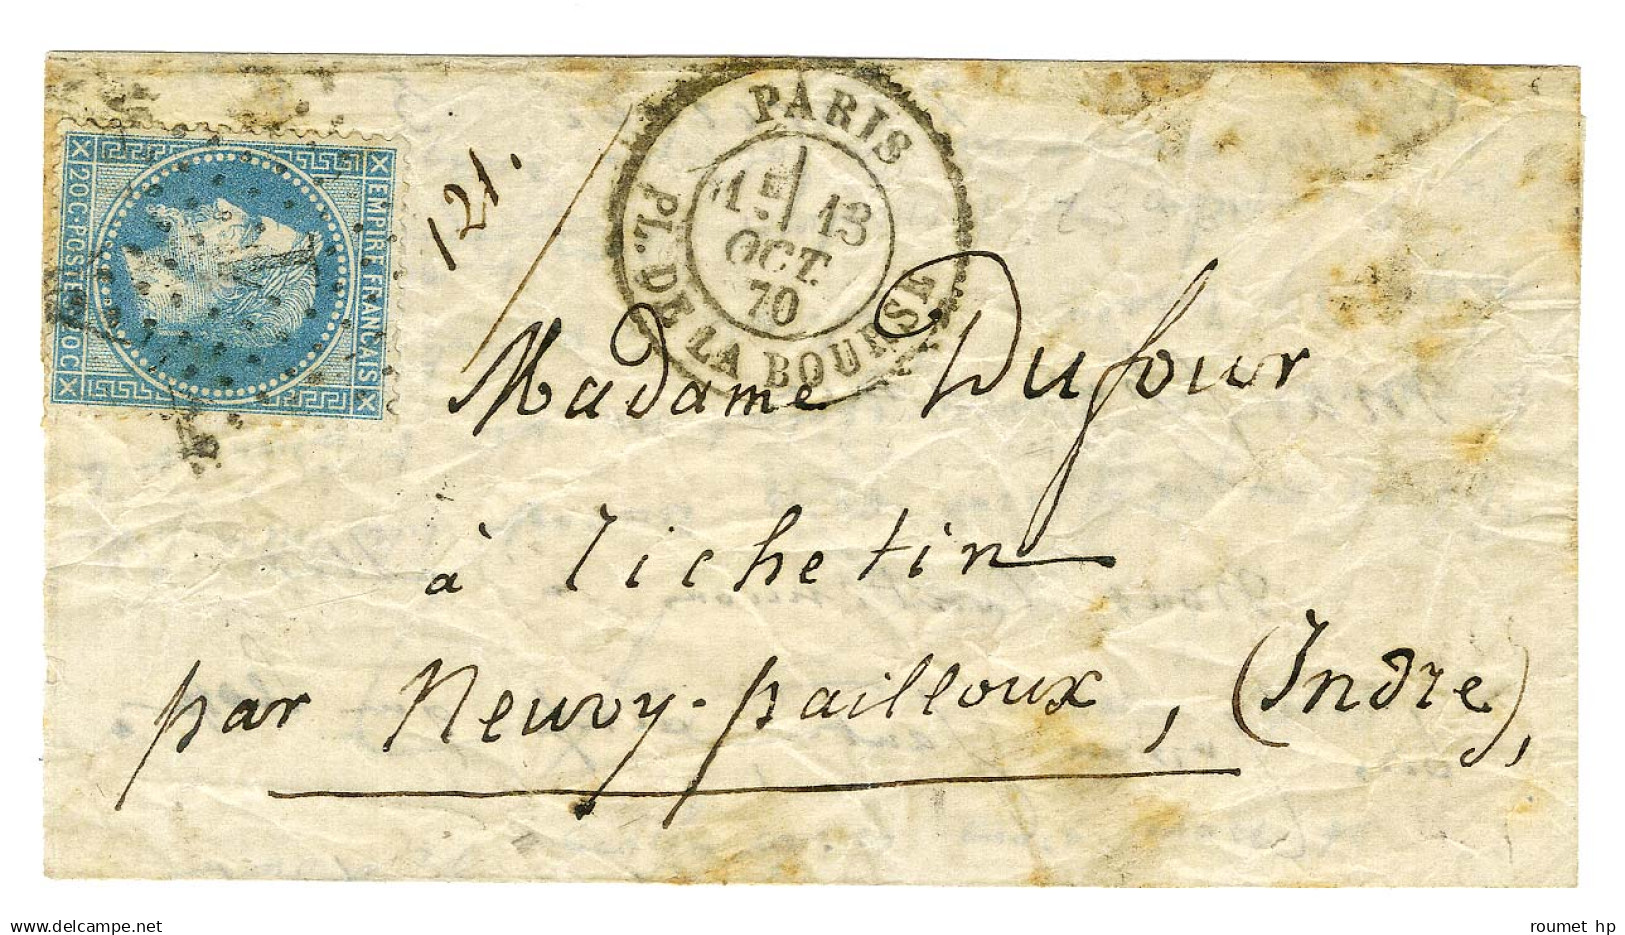 EMPIRE FRANCAIS
20 C POSTES 20 C
121.
PARIS
13
OCT.
70
PL. DE LA BOURSE
Madame Dufour
à Tichetin
par Neuvy-pailloux, (Indre),
delcampe.net
roumet hp